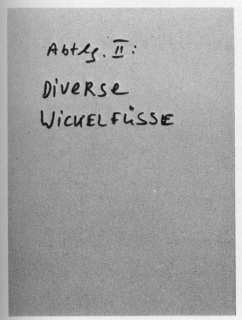 Abtlg. II:
Diverse
Wickelfüsse